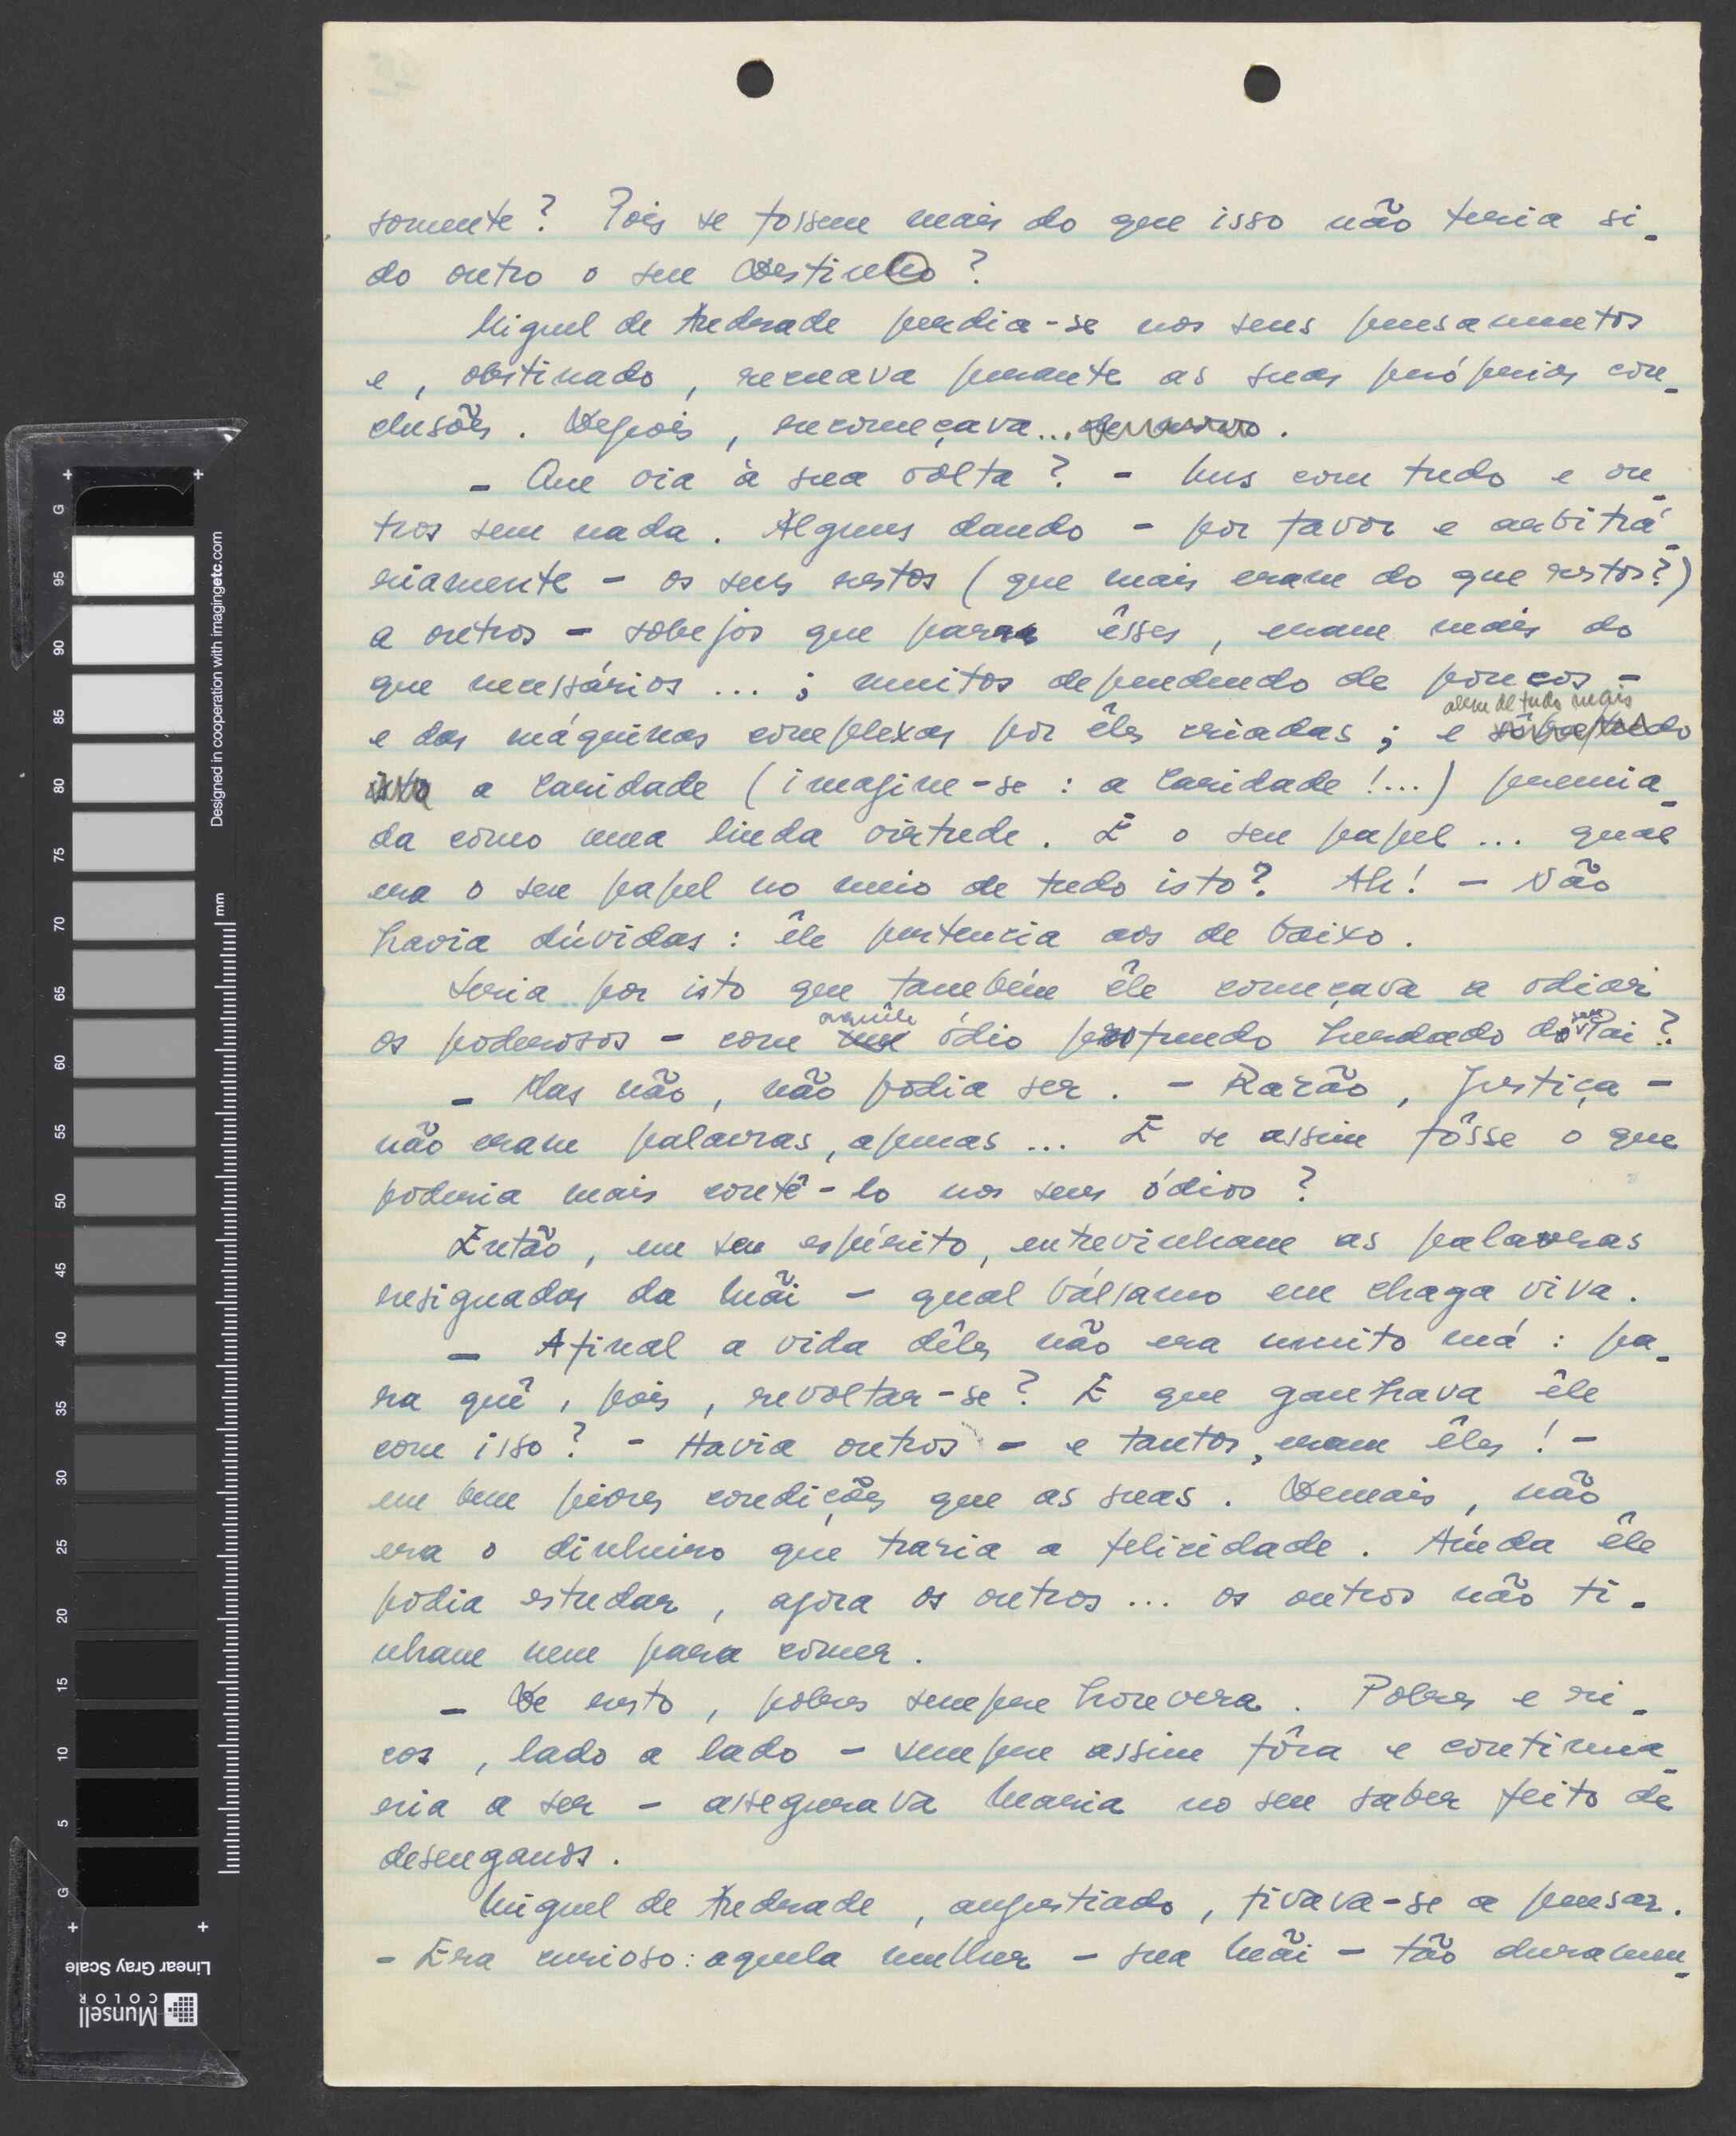 somente? Pois se fossem mais do que isso não teria si-
do outro o seu Destino?
Miguel de Andrade perdia-se nos seus pensamentos
e, obstinado, recuava perante as suas próprias con-
clusões. Depois, recomeçava... de novo.
- Que via à sua volta? - Uns com tudo e ou-
tros sem nada. Alguns dando - por favor e arbitrá-
riamente - os seus restos (que mais eram do que restos?)
a outros - sobejos que para êsses, eram mais do
que necessários ... ; muitos dependendo de poucos -
alem de tudo mais
e das máquinas complexas por êles criadas ; e sobretudo
isto a Caridade (imagine-se : a Caridade !...) premia-
da como uma linda virtude. E o seu papel ... qual
era o seu papel no meio de tudo isto? Ah! - Não
havia dúvidas : êle pertencia aos de baixo.
Seria por isto que também êle começava a odiar
aquêle seu
os poderosos - com um ódio profundo herdado do Pai?
- Mas não, não podia ser. - Razão, Justiça -
não eram palavras, apenas ... E se assim fôsse o que
poderia mais contê-lo nos seus ódios?
Então, em seu espírito, entrevinham as palavras
resignadas da Mãi - qual bálsamo em chaga viva.
- Afinal a vida dêles não era muito má : pa-
ra quê, pois, revoltar-se? E que ganhava êle
com isso? - Havia outros - e tantos, eram êles ! -
em bem piores condições que as suas. Demais, não
era o dinheiro que traria a felicidade. Ainda êle
podia estudar, agora os outros ... os outros não ti-
nham nem para comer.
- De resto, pobres sempre houvera. Pobres e ri-
cos, lado a lado - sempre assim fôra e continua-
ria a ser - assegurava Maria no seu saber feito de
desenganos.
Miguel de Andrade, angustiado, ficava-se a pensar.
- Era curioso: aquela mulher - sua Mãi - tão duramen-
Designed in cooperation with imagingetc.com
mm
G 95 90 85 80 75 70 65 60 55 50 45 40 35 30 25 20 15 10 5 G
Linear Gray Scale
Munsell
COLOR